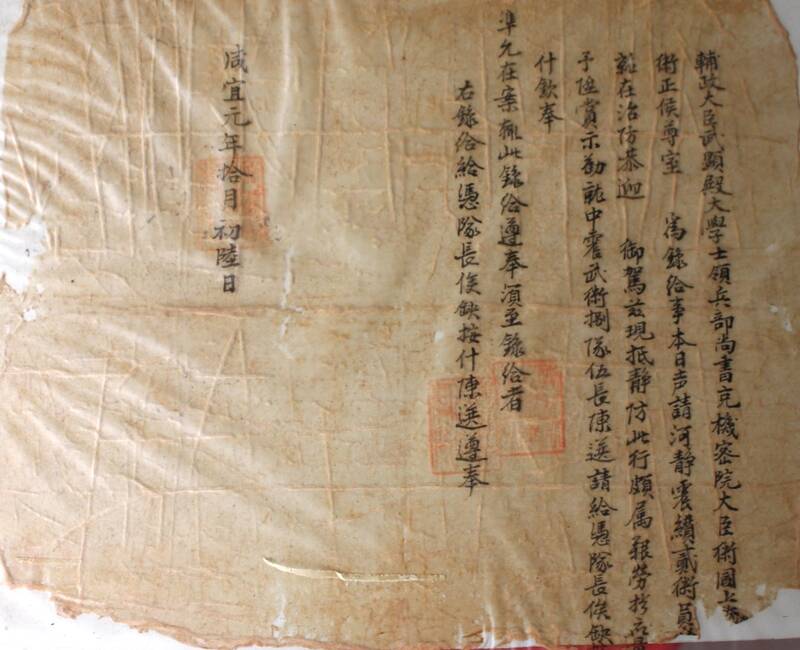 輔政大臣武顯殿大學士領兵部尚書充機密院大臣衛國上
術正侯尊室 為錄給事本日声請河静雲續貳衛員
在治防恭迎 御駕茲現抵静防此行頗属艱劳
予陞賞示勸就中䨱武衛捌隊伍長陳選請給憑隊長侯缺
什欽奉
準允在案輒此錄給遵奉須至錄給者
右錄給給憑隊長侯缺按什陳選遵奉
咸宜元年拾月初陸日